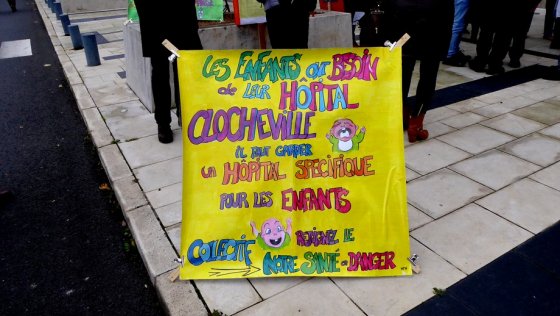 LES ENFANTS ONT BESOIN
de LEUR HÔPITAL
CLOCHEVILLE
IL FAUT GARDER
UN HÔPITAL SPECIFIQUE
POUR LES ENFANTS
COLLECTIF REJOIGNEZ LE
NOTRE SANTÉ en DANGER